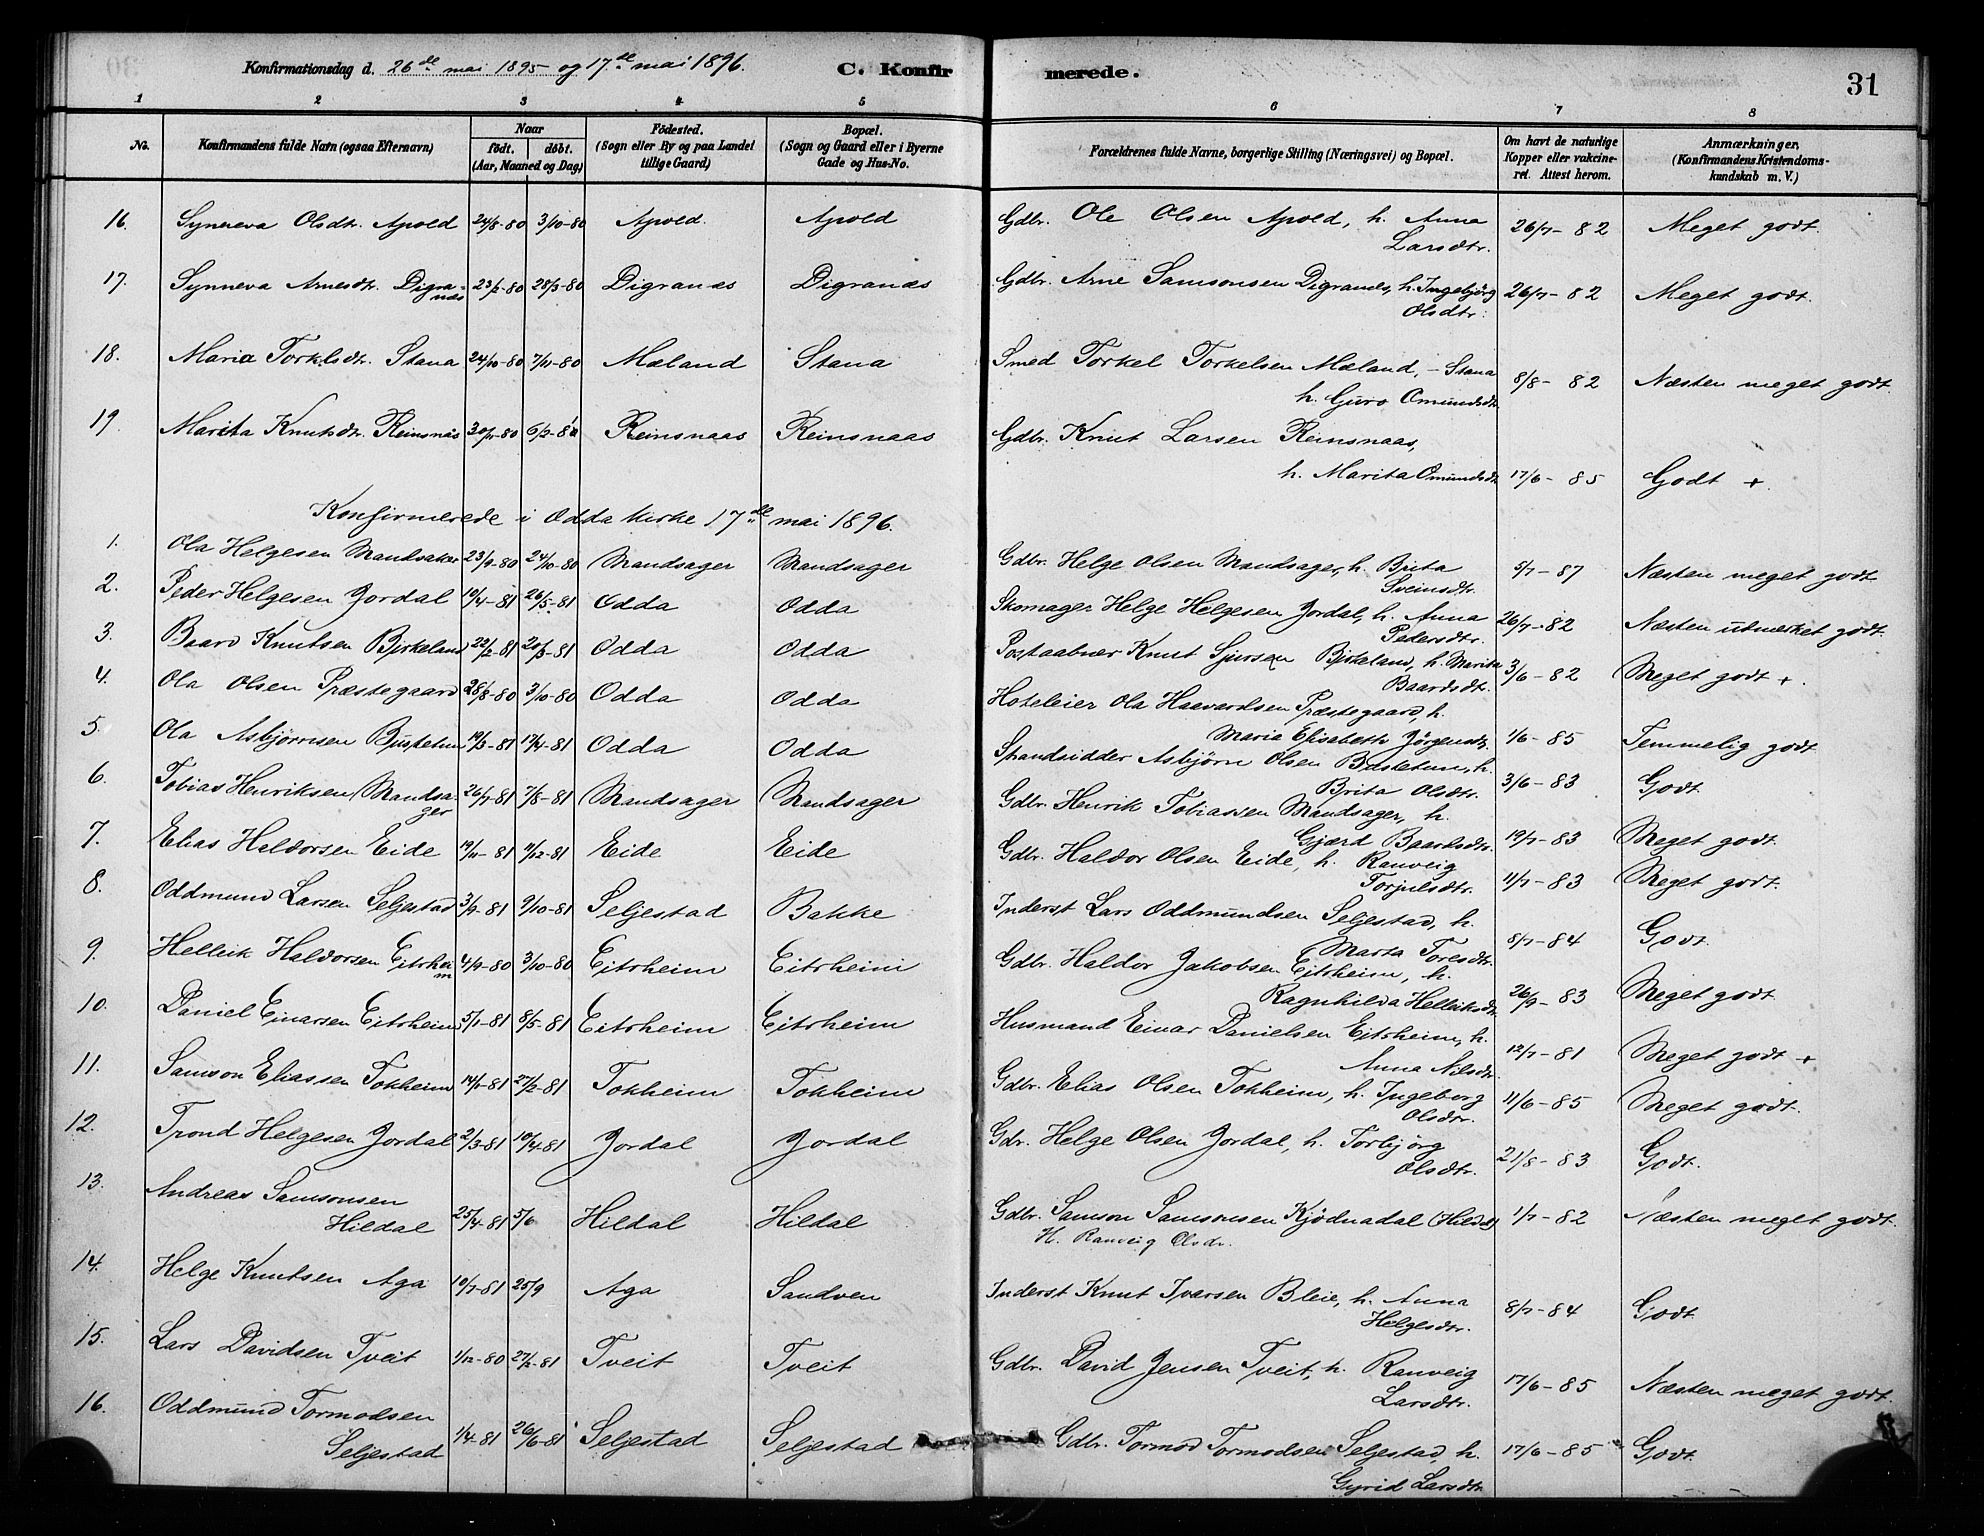 Konfirmationsdag d. 26de mai 1895 og 17de mai 1896. C. Konfirmerede. 31
1 2 3 4 5 6 7 8
No. Konfirmandens fulde Navn (ogsaa Efternavn) Naar født. døbt. (Aar, Maaned og Dag) Födested. (Sogn eller By og paa Landet tillige Gaard) Bopæl. (Sogn og Gaard eller i Byerne Gade og Hus-No. Forældrenes fulde Navne, borgerlige Stilling (Næringsvei) og Bopæl. Om havt de naturlige Kopper eller vakcineret. Attest herom. Anmærkninger, (Konfirmandens Kristendomskundskab m. V.)
16. Synneva Olsdtr. Apold 24/8-80 3/10-80 Apold. Apold Gdbr. Ole Olsen Apold, h. Anna Larsdtr. 26/7-82 Meget godt.
17. Synneva Arnesdtr. Digranæs 23/2-80 28/3-80 Digranæs Digranæs Gdbr. Arne Samsonsen Digranæs, h. Ingebjörg Olsdtr. 26/7-82 Meget godt.
18. Maria Torklsdtr. Stana 24/10-80 7/11-80 Mæland Stana Smed Torkel Torkelsen Mæland, - Stana h. Guro Omundsdtr. 8/8-82 Næsten meget godt.
19. Marita Knutsdtr. Reinsnäs 30/1-80 6/2-80 Reinsnaas Reinsnaas Gdbr. Knut Larsen Reinsnaas, h. Marita Omundsdtr 17/6-85 Godt +.
Konfirmerede i Odda kirke 17de mai 1896.
1. Ola Helgesen Mandsaker 23/9-80 24/10-80 Mandsager Mandsager Gdbr. Helge Olsen Mandsager, h. Brita Sveinsdtr. 5/7-87 Næsten meget godt
2. Peder Helgesen Jordal 19/4-81 26/5-81 Odda Odda Skomager Helge Helgesen Jordal, h. Anna Pedersdtr. 26/7-82 Næsten utmærket godt.
3. Baard Knutsen Bjrkeland 22/2-81 20/3-81 Odda Odda Postaabner Knut Sjursen Bjrkeland, h. Marita Baardsdtr. 3/6-82 Meget godt +.
4. Ola Olsen Præstegaard 28/8-80 3/10-80 Odda Odda Hoteleier Ola Haavardsen Præstegaard, h. Maria Elisabeth Jörgensdtr. 1/6-85 Temmelig godt.
5. Ola Asbjørnsen Busketun 19/3-81 17/4-81 Odda Odda Strandsidder Asbjörn Olsen Busketun, h. Brita Olsdtr. 3/6-83 Godt.
6. Tobias Henriksen Mandsager 26/7-81 7/8-81 Mandsager Mandsager Gdbr. Henrik Tobiassen Mandsager, h. Gjærd Baardsdtr. 19/7-83 Meget godt.
7. Elias Haldorsen Eide 19/11-81 11/12-81 Eide Eide Gdbr. Haldor Olsen Eide, h. Ranveig Torjulsdtr. 11/7-83 Meget godt.
8. Oddmund Larsen Seljestad 3/9-81 9/10-81 Seljestad Bakke Inderst Lars Oddmundsen Seljestad, h. Marta Toresdtr. 8/7-84 Godt.
9. Helleik Haldorsen Eitrheim 4/9-80 3/10-80 Eitrheim Eitrheim Gdbr. Haldor Jakobsen Eitrheim, h. Ragnhilda Helleiksdtr 26/9-83 Meget godt.
10. Daniel Einarsen Eitrheim 5/1-81 8/5-81 Eitrheim Eitrheim Husmand Einar Danielsen Eitrheim, h. Anna Nilsdtr. 12/7-81 Meget godt +
11. Samson Eliassen Tokheim 14/1-81 27/2-81 Tokheim Tokheim Gdbr. Elias Olsen Tokheim, h. Ingeborg Olsdtr. 11/6-85 Meget godt.
12. Trond Helgesen Jordal 2/3-81 10/4-81 Jordal Jordal Gdr. Helge Olsen Jordal, h. Torbjörg Olsdtr. 21/8-83 Godt.
13. Andreas Samsonsen Hildal 25/4-81 5/6 Hildal Hildal Gdbr. Samson Samsonsen Kjödnadal (Hildal) H. Ranveig Olsdr. 1/7-82 Næsten meget godt.
14. Helge Knutsen Aga 10/7-81 25/9 Aga Sandven Inderst Knut Ivarsen Bleie, h. Anna Helgesdtr. 8/7-84 Godt
15. Lars Davidsen Tveit 1/12-80 27/2-81 Tveit Tveit Gdbr. David Jensen Tveit, h. Ranveig Larsdtr. 17/6-85 Næsten meget godt.
16. Oddmund Tormodsen Seljestad 1/4-81 26/6-81 Seljestad Seljestad Gdbr. Tormod Tormodsen Seljestad, h. Gyrid Larsdtr 17/6-85 Godt.